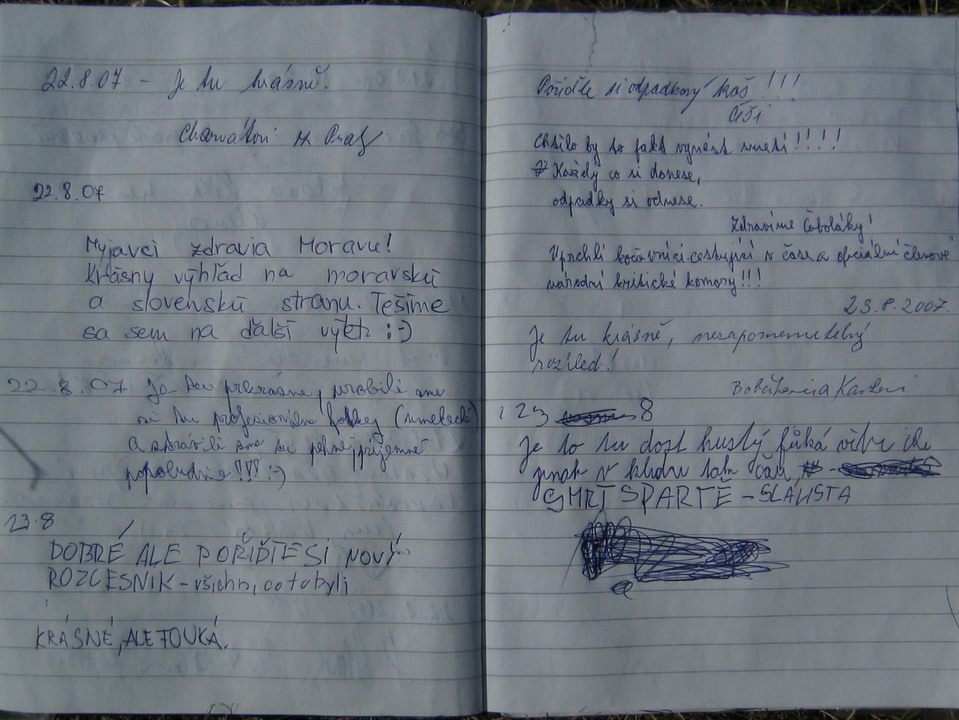 22.8.07 - Je tu krásně.
Charvátovi z Prahy
22.8.07
Myjavci zdravia Moravu!
Krásny výhľad na moravskú
a slovenskú stranu. Tešíme
sa sem na ďalší výlet :-)
22.8.07 Je tu prekrásne, urobili sme
si tu profesionálne fotky (umelecké)
a strávili sme tu pekné, príjemné
popoludnie !!! :-)
23.8
DOBRÉ ALE POŘIĎTE SI NOVÝ
ROZCESNIK - všichni, co to byli
KRÁSNÉ, ALE FOUKÁ.
Pořiďte si odpadkový koš !!!
Chtělo by to fakt vynést smetí !!!!
Každý co si donese,
odpadky si odnese.
Zdravíme Čoboláky!
Uprchlí kočovníci cestující v čase a oficiální členové
národní kritické komory !!!
23.8.2007.
Je tu krásně, nezapomenutelný
rozhled!
23 8
Je to tu dost hustý fůká vítr ale
jinak v klidu
SMRT SPARTĚ - SLÁVISTA